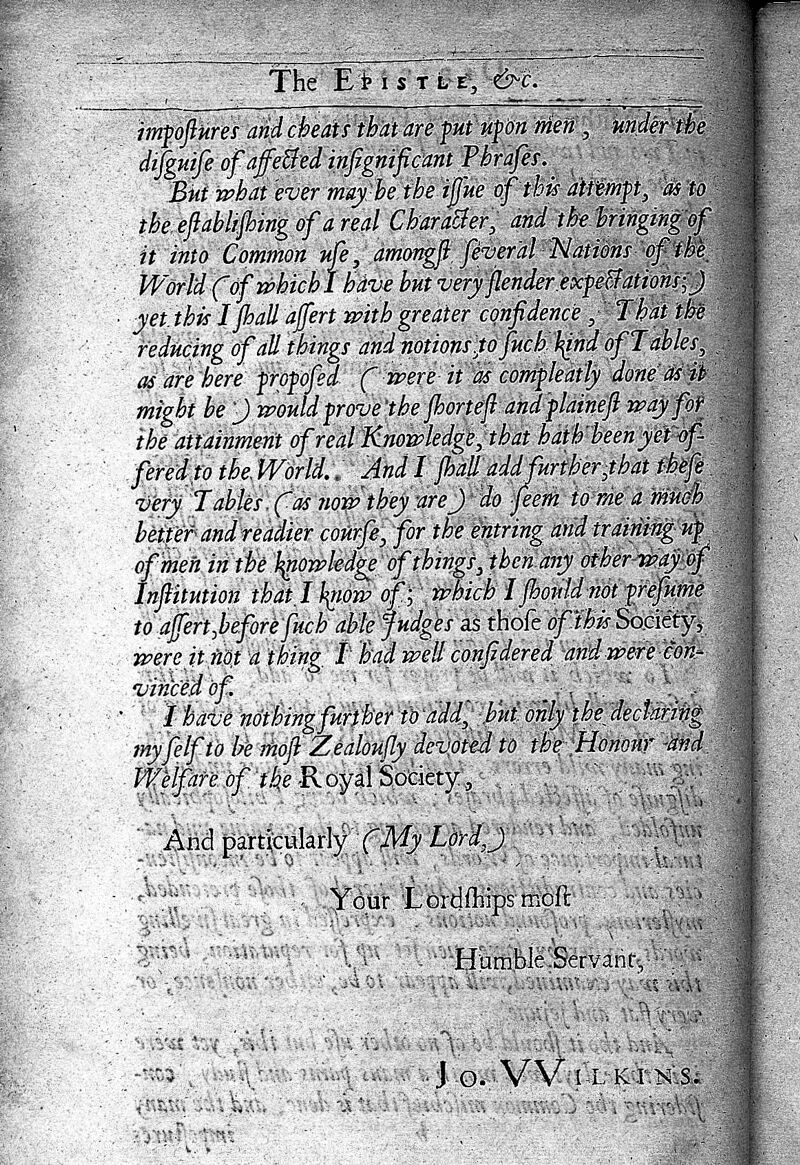 The EPISTLE, &c.
impoſtures and cheats that are put upon men, under the
diſguiſe of affected inſignificant Phraſes.
But what ever may be the iſſue of this attempt, as to
the eſtabliſhing of a real Character, and the bringing of
it into Common uſe, amongſt ſeveral Nations of the
World (of which I have but very ſlender expectations;)
yet this I ſhall aſſert with greater confidence, That the
reducing of all things and notions to ſuch kind of Tables,
as are here propoſed (were it as compleatly done as it
might be) would prove the ſhorteſt and plaineſt way for
the attainment of real Knowledge, that hath been yet of-
fered to the World. And I ſhall add further, that theſe
very Tables (as now they are) do ſeem to me a much
better and readier courſe, for the entring and training up
of men in the knowledge of things, then any other way of
Inſtitution that I know of; which I ſhould not preſume
to aſſert, before ſuch able Judges as thoſe of this Society,
were it not a thing I had well conſidered and were con-
vinced of.
I have nothing further to add, but only the declaring
my ſelf to be moſt Zealouſly devoted to the Honour and
Welfare of the Royal Society,
And particularly (My Lord,)
Your Lordſhips moſt
Humble Servant,
JO. VVILKINS.